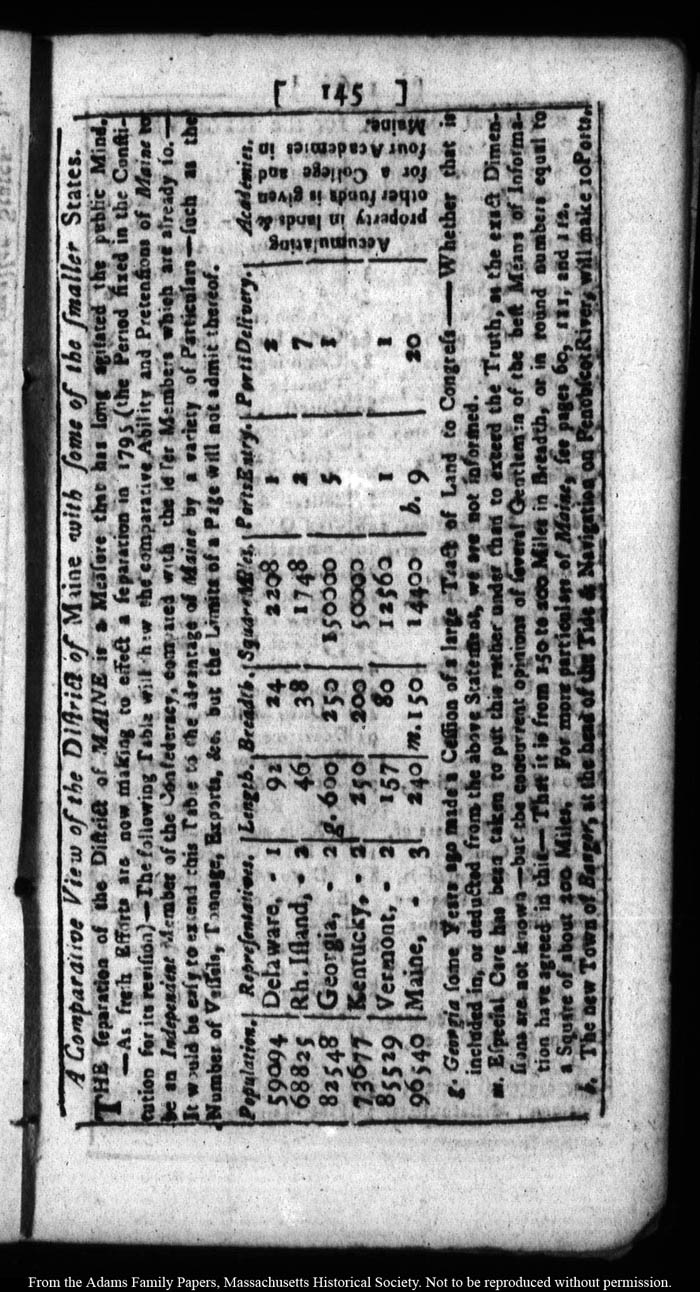 [ 145 ]
A Comparative View of the District of Maine with some of the smaller States.
THE separation of the District of MAINE is a Measure that has long agitated the public Mind.
—As fresh Efforts are now making to effect a separation in 1795 (the Period fixed in the Consti-
tution for its revision)—The following Table will shew the comparative Ability and Pretensions of Maine to
be an Independent Member of the Confederacy, compared with the lesser Members which are already so.—
It would be easy to extend this Table to the advantage of Maine by a variety of Particulars—such as the
Number of Vessels, Tonnage, Exports, &c. but the Limits of a Page will not admit thereof.
Population. Representations. Length. Breadth. Square Miles. Ports Entry. Ports Delivery. Academies.
59094 Delaware, - 1 92 24 2208 1 2
68825 Rh. Island, - 2 46 38 1748 2 7
82548 Georgia, - 2 g. 600 250 150000 5 1
73677 Kentucky, - 2 250 200 50000
85529 Vermont, - 2 157 80 12560 1 1
96540 Maine, - 3 240 m. 150 14400 b. 9 20
Accumulating
property in lands &
other funds is given
for a College and
four Academies in
Maine.
g. Georgia some Years ago made a Cession of a large Tract of Land to Congress—Whether that is
included in, or deducted from the above Statement, we are not informed.
m. Especial Care has been taken to put this rather under than to exceed the Truth, as the exact Dimen-
sions are not known—but the concurrent opinions of several Gentlemen of the best Means of Informa-
tion have agreed in this—That it is from 150 to 200 Miles in Breadth, or in round numbers equal to
a Square of about 200 Miles. For more particulars of Maine, see pages 60, 111, and 112.
b. The new Town of Bangor, at the head of the Tide & Navigation on Penobscot River, will make 10 Ports.
From the Adams Family Papers, Massachusetts Historical Society. Not to be reproduced without permission.